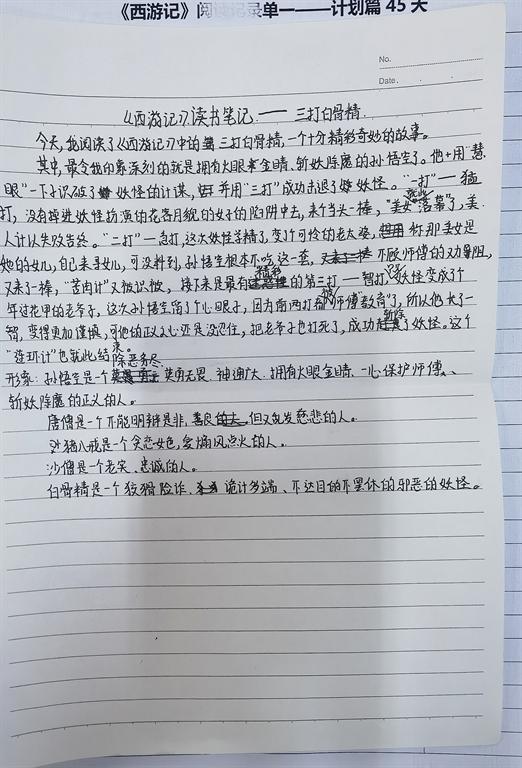 《西游记》阅读记录单一——计划篇 45 天
No.
Date.
《西游记》读书笔记 —— 三打白骨精
今天,我阅读了《西游记》中的三打白骨精,一个十分精彩奇妙的故事。
其中,最令我印象深刻的就是拥有火眼金睛、斩妖除魔的孙悟空了。他用"慧
眼"一下子识破了妖怪的计谋,并用"三打"成功击退了妖怪。"一打"— 猛
打,没有掉进妖怪扮演的花容月貌的女子的陷阱中去,来个当头一棒,"美女"就此落幕了,美
人计以失败告终。"二打"—急打,这次妖怪学精了,变了个可怜的老太婆,称那美女是
她的女儿,自己来寻女儿,可没料到,孙悟空根本不吃这一套,不顾师傅的劝导阻,
又来了一棒,"苦肉计"又被识破,接下来是最有精彩的第三打—智打,只见妖怪变成了个
年过花甲的老爷子,这次孙悟空留了个心眼子,因为前两打都被师傅"教育"了,所以他长了一
智,变得更加谨慎,可他的正义心还是没忍住,把老爷子也打死了,成功斩除了妖怪。这个
"连环计"也就此结束。
形象:孙悟空是个除恶务尽、英勇无畏、神通广大、拥有火眼金睛、一心保护师傅、
斩妖除魔的正义的人。
唐僧是一个不能明辨是非,但又爱发慈悲的人。
猪八戒是一个贪恋女色,爱煽风点火的人。
沙僧是一个老实、忠诚的人。
白骨精是一个狡猾险诈、诡计多端、不达目的不罢休的邪恶的妖怪。